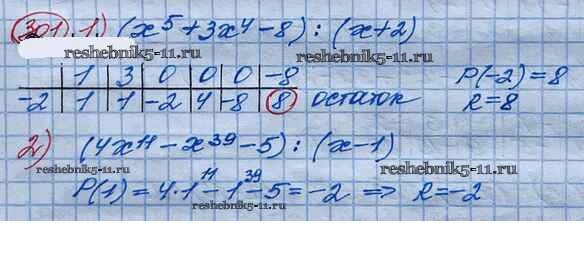 301. 1) (x⁵ + 3x⁴ - 8) : (x + 2)
reshebnik5-11.ru
reshebnik5-11.ru
1 3 0 0 0 -8
P(-2) = 8
-2 1 1 -2 4 -8 8 остаток
R = 8
2) (4x¹¹ - x³⁹ - 5) : (x - 1)
reshebnik5-11.ru
reshebnik5-11.ru
P(1) = 4·1¹¹ - 1³⁹ - 5 = -2 ⟹ R = -2